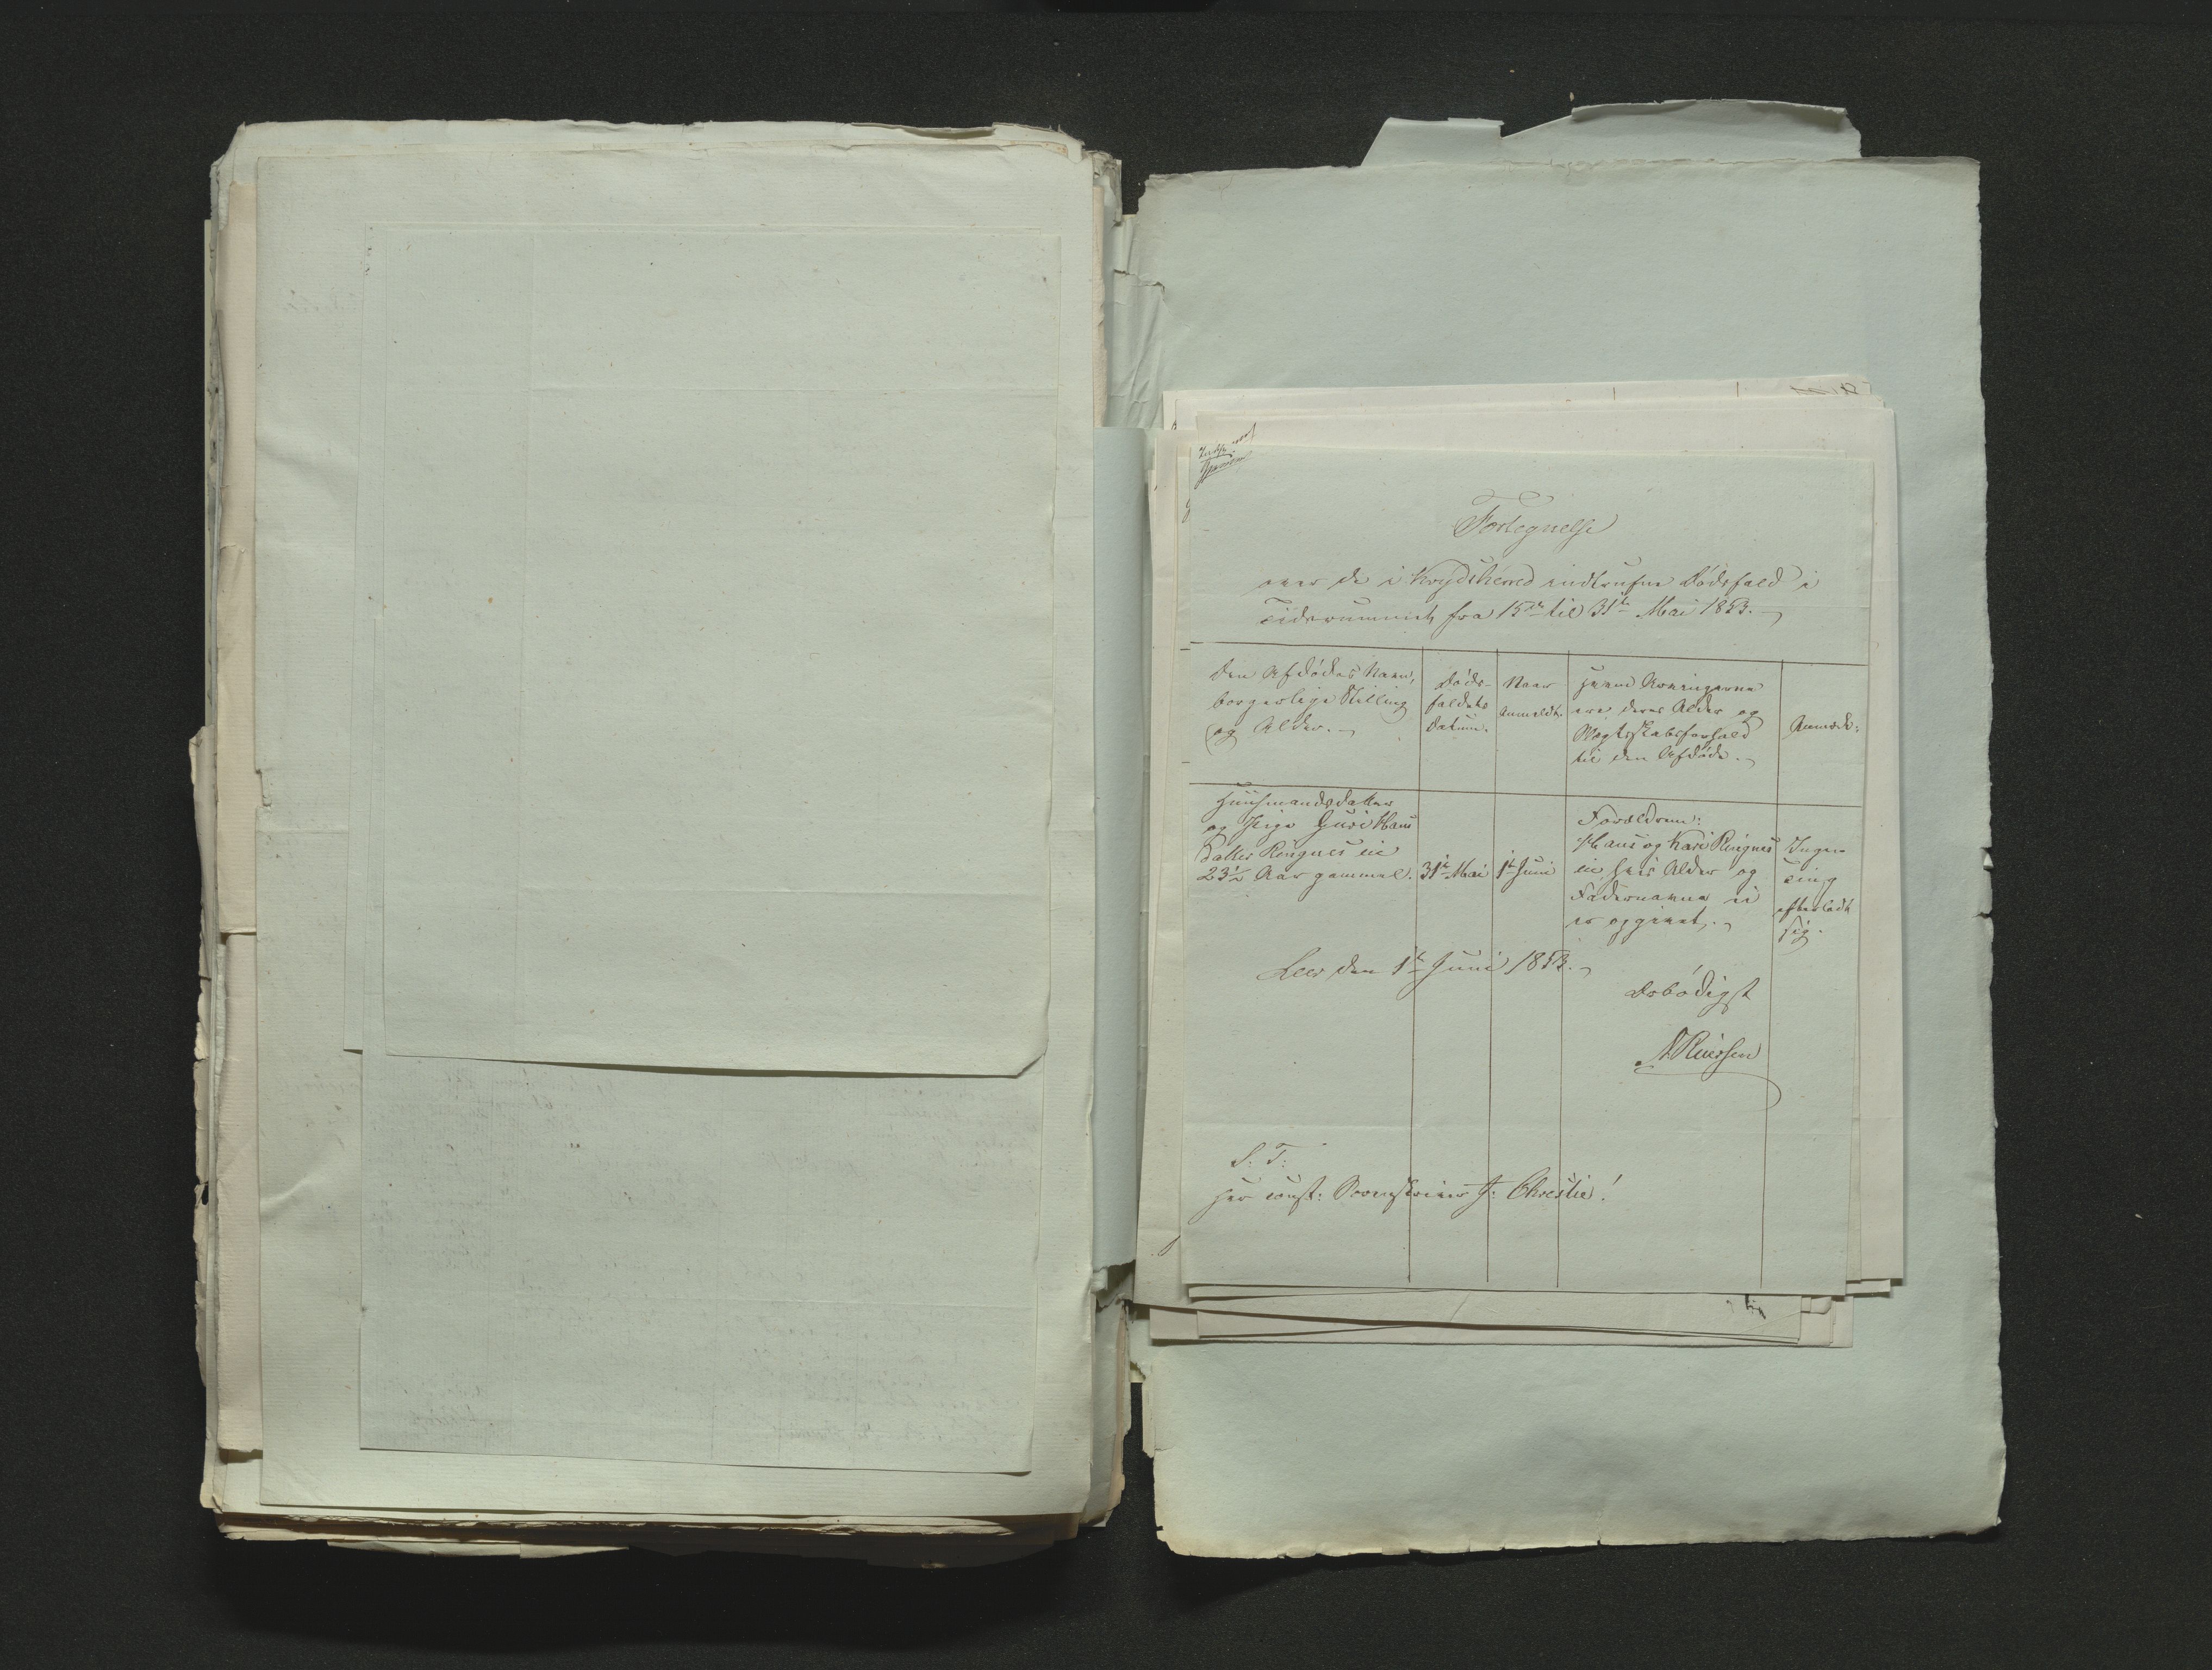 Fortegnelse
over de i Krydsherred indtrufne Dödsfald i
Tidsrummet fra 15de til 31te Mai 1853.
Den Afdödes Navn,
borgerlige Stilling
og Alder.
Döds-
faldets
Datum.
Naar
Anmeldt.
hvem Arvingerne
ere deres Alder og
Slegtskabsforhold
til den Afdöde.
Anmærk:
Huusmandsdatter
og Pige Guri Hans
Datter Ringnes eie
23½ Aar gammel.
31te Mai
1te Juni
Forældrene:
Hans og Kari Ringnes
eie, hvis Alder og
Fadernavne ei
er opgivet.
Ingen-
ting
efterladt
sig.
Leer den 1te Juni 1853.
Ærbödigst
S: T:
Her const: Sorenskriver J: Christie!